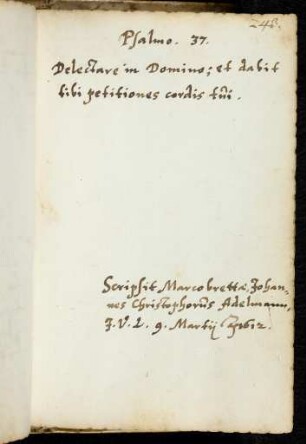 248.
Psalmo. 37.
Delectare in Domino; et dabit
tibi petitiones cordis tui.
Scripsit Marcobrettæ, Johan-
nes Christophorus Adelmann,
J. V. L. 9. Martij 1612.